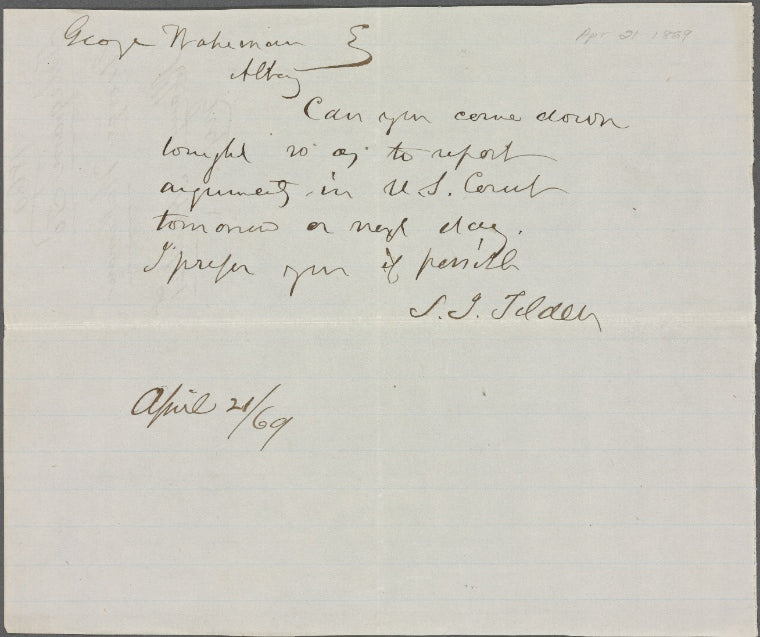 George Wakeman E
Apr 21 1869
Alby
Can you come down
tonight so as to report
arguments in U.S. Court
tomorrow or next day.
I prefer you if possible
S. J. Tilden
April 21/69